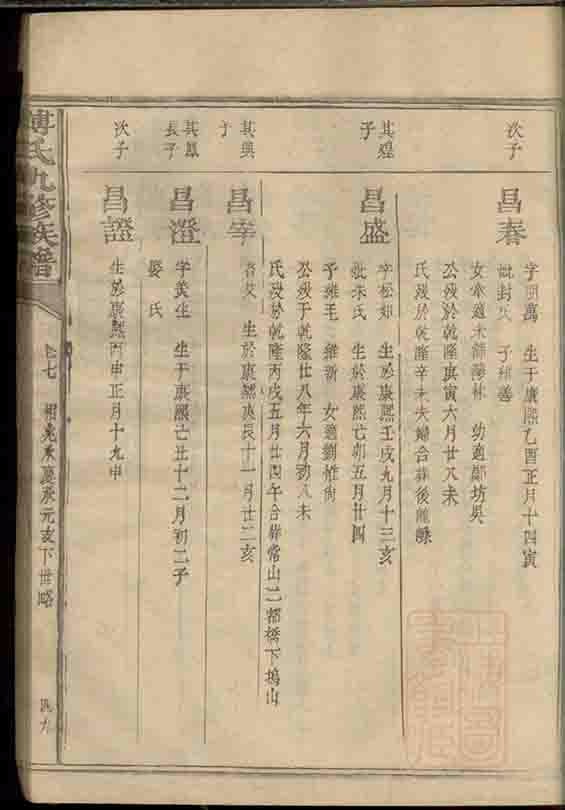 次子
昌春
字開萬 生于康熙乙酉正月十四寅
妣封氏 子維善
女本適木 林 幼適鄭坊吳
公歿於乾隆庚寅六月廿八未
氏歿於乾隆辛未夫婦合葬後
其煌
子
昌盛
字松如 生於康熙壬戌九月十三亥
妣朱氏 生於康熙 卯五月廿四
子維毛 維新 女適劉
公歿于乾隆廿八年六月初八未
氏歿於乾隆丙戌五月廿四午合葬常山二都橋下塢山
其興
子
昌宰
生於康熙庚辰十一月廿二亥
其鳳
長子
昌澄
字美生 生于康熙 丑十二月初二子
晏氏
次子
昌證
生於康熙丙申正月十九申
傅氏九修族譜
卷七
承慶承元亥下世略
四九